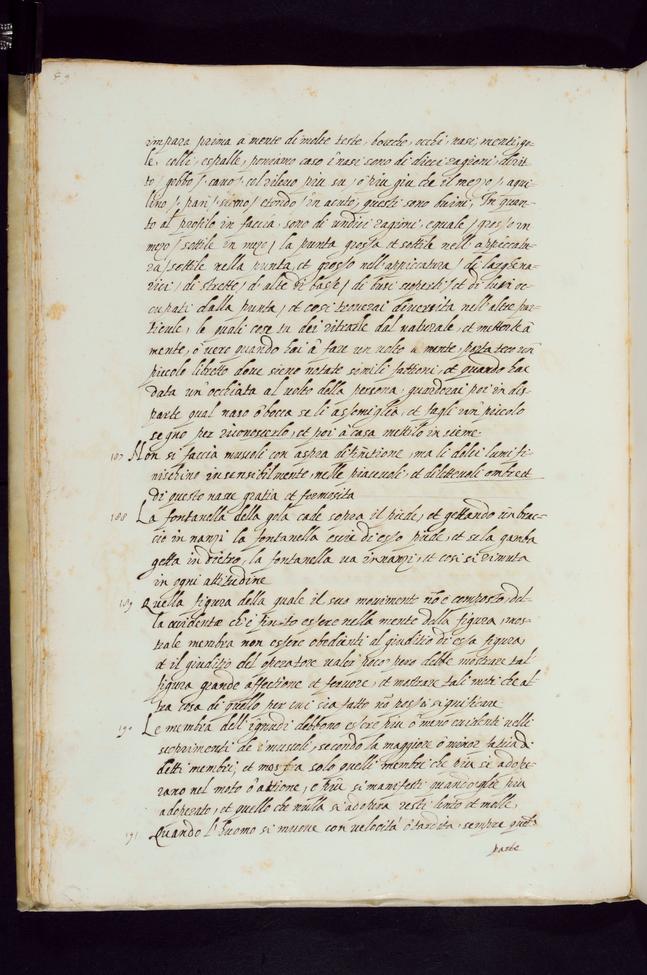 impara prima à mente di molte teste, bocche, occhi, nasi, menti, go-
le, colli, e spalle, poniamo caso i nasi sono di dieci ragioni, drit-
to, gobbo, cavo, col rilevo piu su, o piu giu che il mezo, aqui-
lino, pari, simo, e tondo, in acuto, questi sono buoni. In quan-
to al profilo in faccia, sono di undici ragioni, equale, grosso in
mezo, sottile in mezo, la punta grossa et sottile nell'appiccatu-
ra, sottile nella punta, et grosso nell'appiccatura, di larghe na-
rici, di strette, di alte di basse, di busi scoperti, et di busi oc-
cupati dalla punta, et cosi troverai diversità nell'altre par-
ticule, le quali cose tu dei ritrarle dal naturale, et metterle à
mente, o vero quando hai à fare un volto a mente, porta teco un
piccolo libretto dove sieno notate simili fattioni, et quando hai
data un'occhiata al volto della persona, guarderai poi in dis-
parte qual naso ò bocca se li assomiglia, et fagli un piccolo
segno per riconoscerlo, et poi à casa mettilo insieme.
187 Non si faccia muscoli con aspra difinitione, ma li dolci lumi fi-
nischino insensibilmente, nelle piacevoli, et dilettevoli ombre et
di questo nasce gratia et formosita
188 La fontanella della gola cade sopra il piede, et gettando un brac-
cio in nanzi la fontanella escie di esso piede, et se la gamba
getta in dietro, la fontanella va innanzi, et cosi si rimuta
in ogni attitudine
189 Quella figura della quale il suo movimento nõ è composto, del-
la accidentæ ch'è finto essere nella mente della figura, mos-
trale membra non essere obedienti al giuditio di essa figura
et il giuditio del operatore valer poco, pero debbe mostrare tal
figura grande affettione et fervore, et mostrare tali moti che al-
tra cosa di quello per cui sia fatto nõ possi significare
190 Le membra dell'ignudi debbono essere piu ò meno evidenti nelli
scoprimenti de i muscoli, secondo la maggiore ò minor fatica di
detti membri, et mostra solo quelli membri che piu si adope-
rano nel moto ò attione, e piu si manifesti quando egli è piu
adoperato, et quello che nulla si adopera resti lento et molle.
191 Quando l'huomo si muove con velocità ò tardita, sempre quella
parte